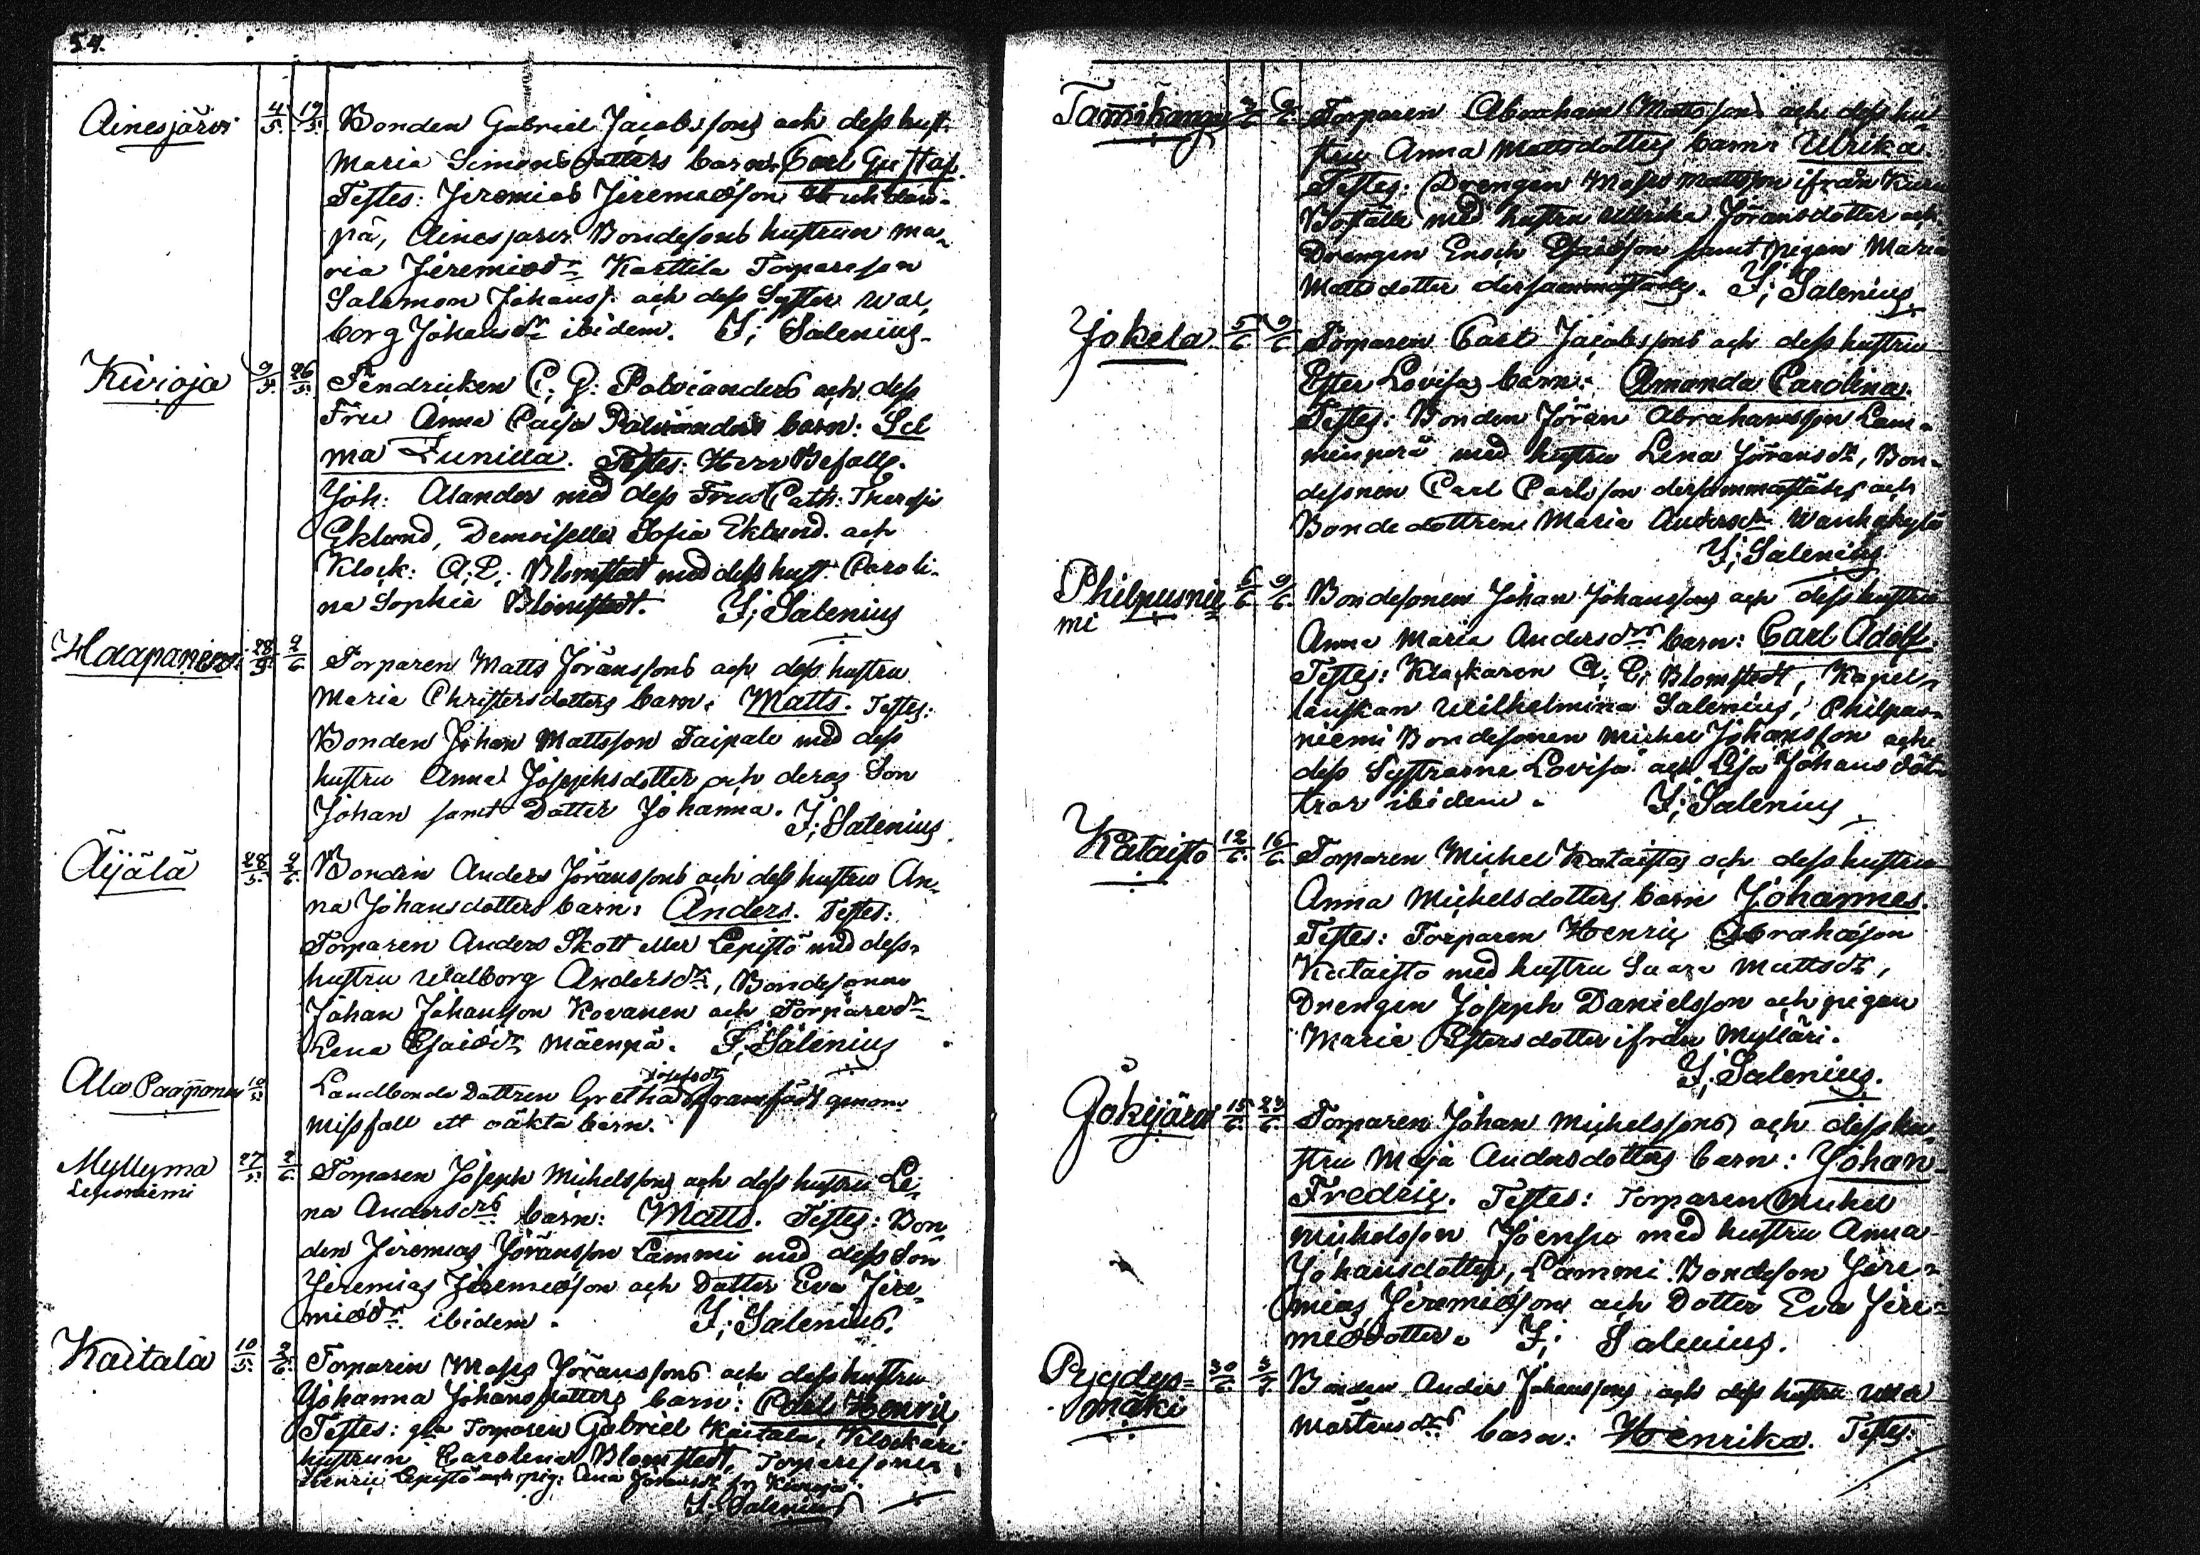 54.
Ainesjärvi 4/5. 19/5. Bonden Gabriel Jacobssons och dess hust.
Maria Simonsdotters barn: Carl Gustaf.
Testes: Jeremias Jeremiæson
pä, Ainesjärvi Bondesons hustrun Ma-
ria Jeremiædr Karttila Torpareson
Salomon Johanss. och dess Syster Wal-
borg Johansdr ibidem. F; Salenius.
Kivioja 9/5. 26/5. Fendricken C. G. Palvianders och dess
Fru Anna Caisa Palvianders barn: Sel
ma Gunilla. Testes: Herr Befallg.
Joh: Alander med dess Fru Cath: Theresi
Eklund, Demoiselle Sofia Eklund och
Klock: A; L; Blomstedt med dess hust: Caroli-
na Sophia Blomstedt. F; Salenius
Haapaniemi 28/5. 2/6. Torparen Matts Jöranssons och dess hustru
Maria Christersdotters barn: Matts. Testes:
Bonden Johan Mattsson Taipale med dess
hustru Anna Josephsdotter och deras Son
Johan samt Dotter Johanna. F; Salenius
Äijälä 28/5. 2/6. Bonden Anders Jöranssons och dess hustru An-
na Johansdotters barn: Anders. Testes:
Torparen Anders Skott eller Lepistö med dess
hustru Walborg Andersdr, Bondesonen
Johan Johansson Kovanen och Torparedr
Lena Esaiædr Mäenpä. F; Salenius
Ala Paappanen 10/5. Landbonde Dottren Gretha Josefsdr framfödt genom
missfall ett oäkta barn.
Myllymä 27/5. 2/6. Torparen Joseph Michelssons och dess hustru Le-
Leponiemi
na Andersdrs barn: Matts. Testes: Bon-
den Jeremias Jöransson Lammi med dess Son
Jeremias Jeremiæson och Dotter Eva Jere-
miædr ibidem. F; Salenius.
Kaitala 10/5. 2/6. Torparen Moses Jöranssons och dess hustru
Johanna Johansdotters barn: Carl Henric
Testes: gla Torparen Gabriel Kaitala, Klockare
hustrun Carolina Blomstedt, Torparesonen
Henric Lepistö och pig: Anna Jöransdr fr Kivioja
F; Salenius
Tamikangas 2/6. Torparen Abraham Mattssons och dess hu
stru Anna Mattsdotters barn: Ulrika.
Testes: Drengen Moses Mattsson ifrån Kuru
Boställe med hustru Ullrika Jöransdotter och
Drengen Enoch Esaiæson samt pigan Maria
Mattsdotter dersammastädes. F; Salenius
Jokela 5/6. 9/6. Torparen Carl Jacobssons och dess hustru
Ester Lovisas barn: Amanda Carolina.
Testes: Bonden Jöran Abrahamsson Lam-
minperä med hustru Lena Jöransdr, Bon-
desonen Carl Carlsson dersammastädes och
Bondedottren Maria Andersdr Wanhakylä
F; Salenius
Philpusnie 6/6. 9/6. Bondesonen Johan Johanssons och dess hustru
mi
Anna Maria Andersdrs barn: Carl Adolf.
Testes: Klockaren A; L; Blomstedt, Kapel-
lanskan Wilhelmina Salenius, Philpus-
niemi Bondesonen Michel Johansson och
dess Systrarne Lovisa och Lisa Johans döt-
trar ibidem. F; Salenius
Kataisto 12/6. 16/6. Torparen Michel Kataistos och dess hustru
Anna Michelsdotters barn Johannes.
Testes: Torparen Henric Abrahæson
Kataisto med hustru Saara Mattsdr,
Drengen Joseph Danielsson och pigan
Maria Estersdotter ifrån Mylläri.
F; Salenius.
Jokijärvi 15/6. 23/6. Torparen Johan Michelssons och dess hu-
stru Maja Andersdotters barn: Johan
Fredric. Testes: Torparen Michel
Michelsson Joensu med hustru Anna
Johansdotter, Lammi Bondeson Jere-
mias Jeremiæson och Dotter Eva Jere-
miædotter. F; Salenius.
Pyydys- 30/6. 3/7. Bonden Anders Johanssons och dess hustru Ulla
mäki
Mårtensdrs barn: Henrika. Testes: